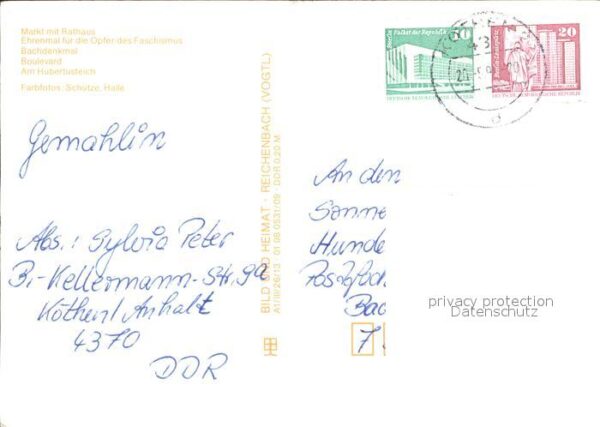 Markt mit Rathaus
Ehrenmal für die Opfer des Faschismus
Bachdenkmal
Boulevard
Am Hubertusteich
Farbfotos: Schütze, Halle
Gemahlin
Abs.: Sylvia Peter
B.-Kellermann-Str. 9a
Köthen/Anhalt
4370
DDR
BILD UND HEIMAT · REICHENBACH (VOGTL)
A1/III/26/13 · 01 08 0531/09 · DDR 0,20 M
Berlin, Palast der Republik
10
DEUTSCHE DEMOKRATISCHE REPUBLIK
Berlin, Leninplatz
20
DEUTSCHE DEMOKRATISCHE REPUBLIK
An den
Sonne
Hunde
Bad
7
privacy protection
Datenschutz